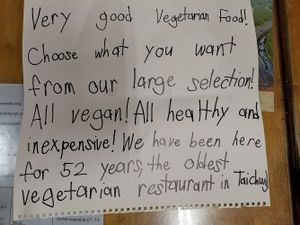 Very good Vegetarian Food!
Choose what you want
from our large selection!
All vegan! All healthy and
inexpensive! We have been here
for 52 years, the oldest
vegetarian restaurant in Taichung